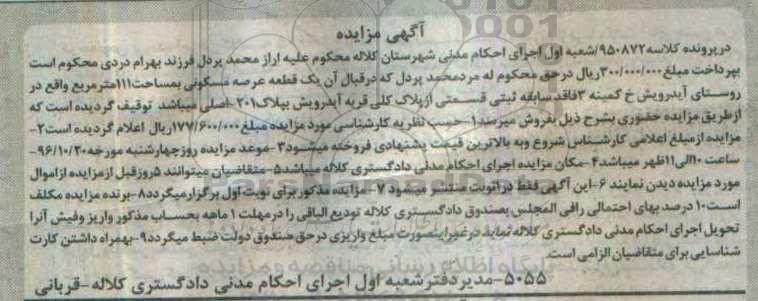 آگهی مزایده
در پرونده کلاسه ۹۵۰۸۷۲/شعبه اول اجرای احکام مدنی شهرستان کلاله محکوم علیه اراز محمد پردل فرزند بهرام دردی محکوم است
بپرداخت مبلغ ۳۰۰/۰۰۰/۰۰۰ریال در حق محکوم له مردمحمد پردل که درقبال آن یک قطعه عرصه مسکونی بمساحت ۱۱۱مترمربع واقع در
روستای آیدرویش خ کمینه ۳فاقد سابقه ثبتی قسمتی ازپلاک کلی قریه آیدرویش بپلاک ۲۰۱-اصلی میباشد توقیف گردیده است که
ازطریق مزایده حضوری بشرح ذیل بفروش میرسد۱-حسب نظریه کارشناسی مورد مزایده مبلغ ۱۷۷/۶۰۰/۰۰۰ریال اعلام گردیده است۲-
مزایده ازمبلغ اعلامی کارشناس شروع وبه بالاترین قیمت پیشنهادی فروخته میشود۳-موعد مزایده روزچهارشنبه مورخه۹۶/۱۰/۲۰-
ساعت ۱۰الی۱۱ظهر میباشد۴-مکان مزایده اجرای احکام مدنی دادگستری کلاله میباشد۵-متقاضیان میتوانند ۵روزقبل ازمزایده ازاموال
مورد مزایده دیدن نمایند ۶-این آگهی فقط درا۱نوبت منتشر میشود ۷-مزایده مذکوربرای نوبت اول برگزارمیگردد۸-برنده مزایده مکلف
است۱۰ درصد بهای احتمالی رافی المجلس بصندوق دادگستری کلاله تودیع الباقی را درمهلت ۱ ماهه بحساب مذکور واریز وفیش آنرا
تحویل اجرای احکام مدنی دادگستری کلاله نماید درغیراینصورت مبلغ واریزی درحق صندوق دولت ضبط میگردد۹-بهمراه داشتن کارت
شناسایی برای متقاضیان الزامی است.
۵۰۵۵-مدیردفترشعبه اول اجرای احکام مدنی دادگستری کلاله-قربانی